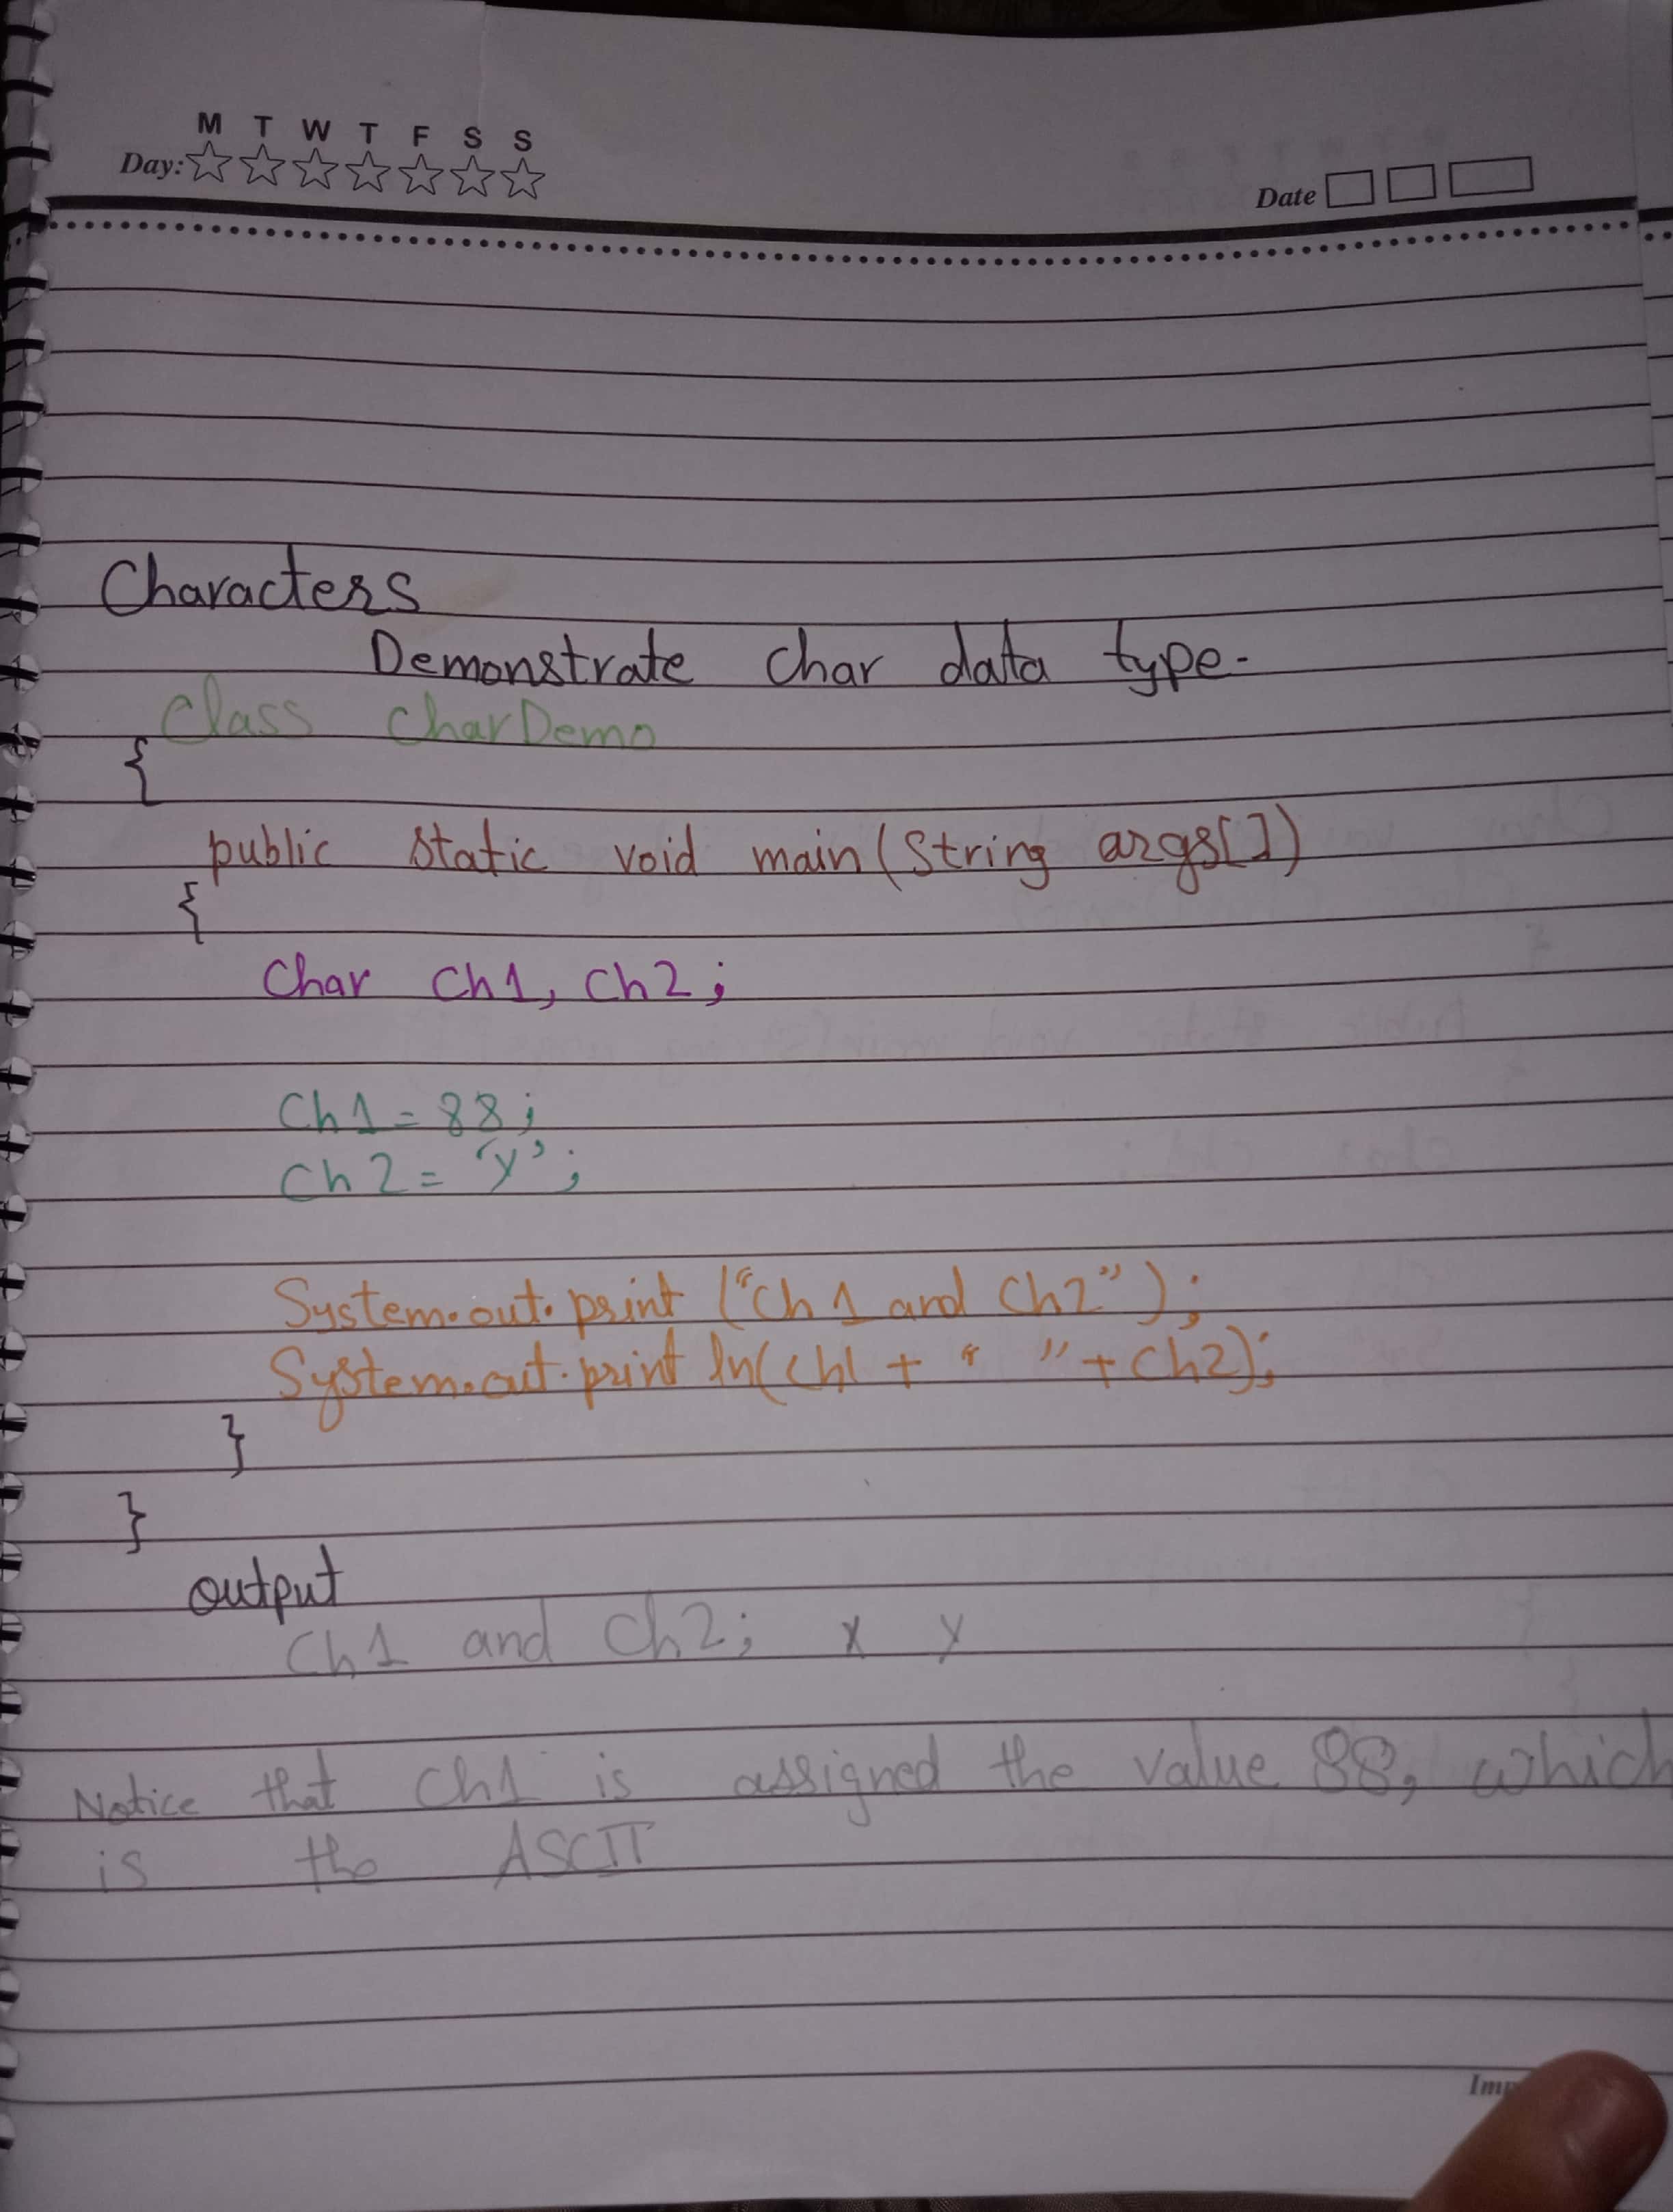 M T W T F S S
Day:
Date
Characters
Demonstrate char data type.
Class CharDemo
{
public static void main(String args[])
{
Char Ch1, Ch2;
Ch1 = 88;
Ch2 = 'Y';
System.out.print ("Ch1 and Ch2");
System.out.print ln(ch1 + " " + Ch2);
}
}
output
Ch1 and Ch2; X Y
Notice that Ch1 is assigned the value 88, which
is the ASCII